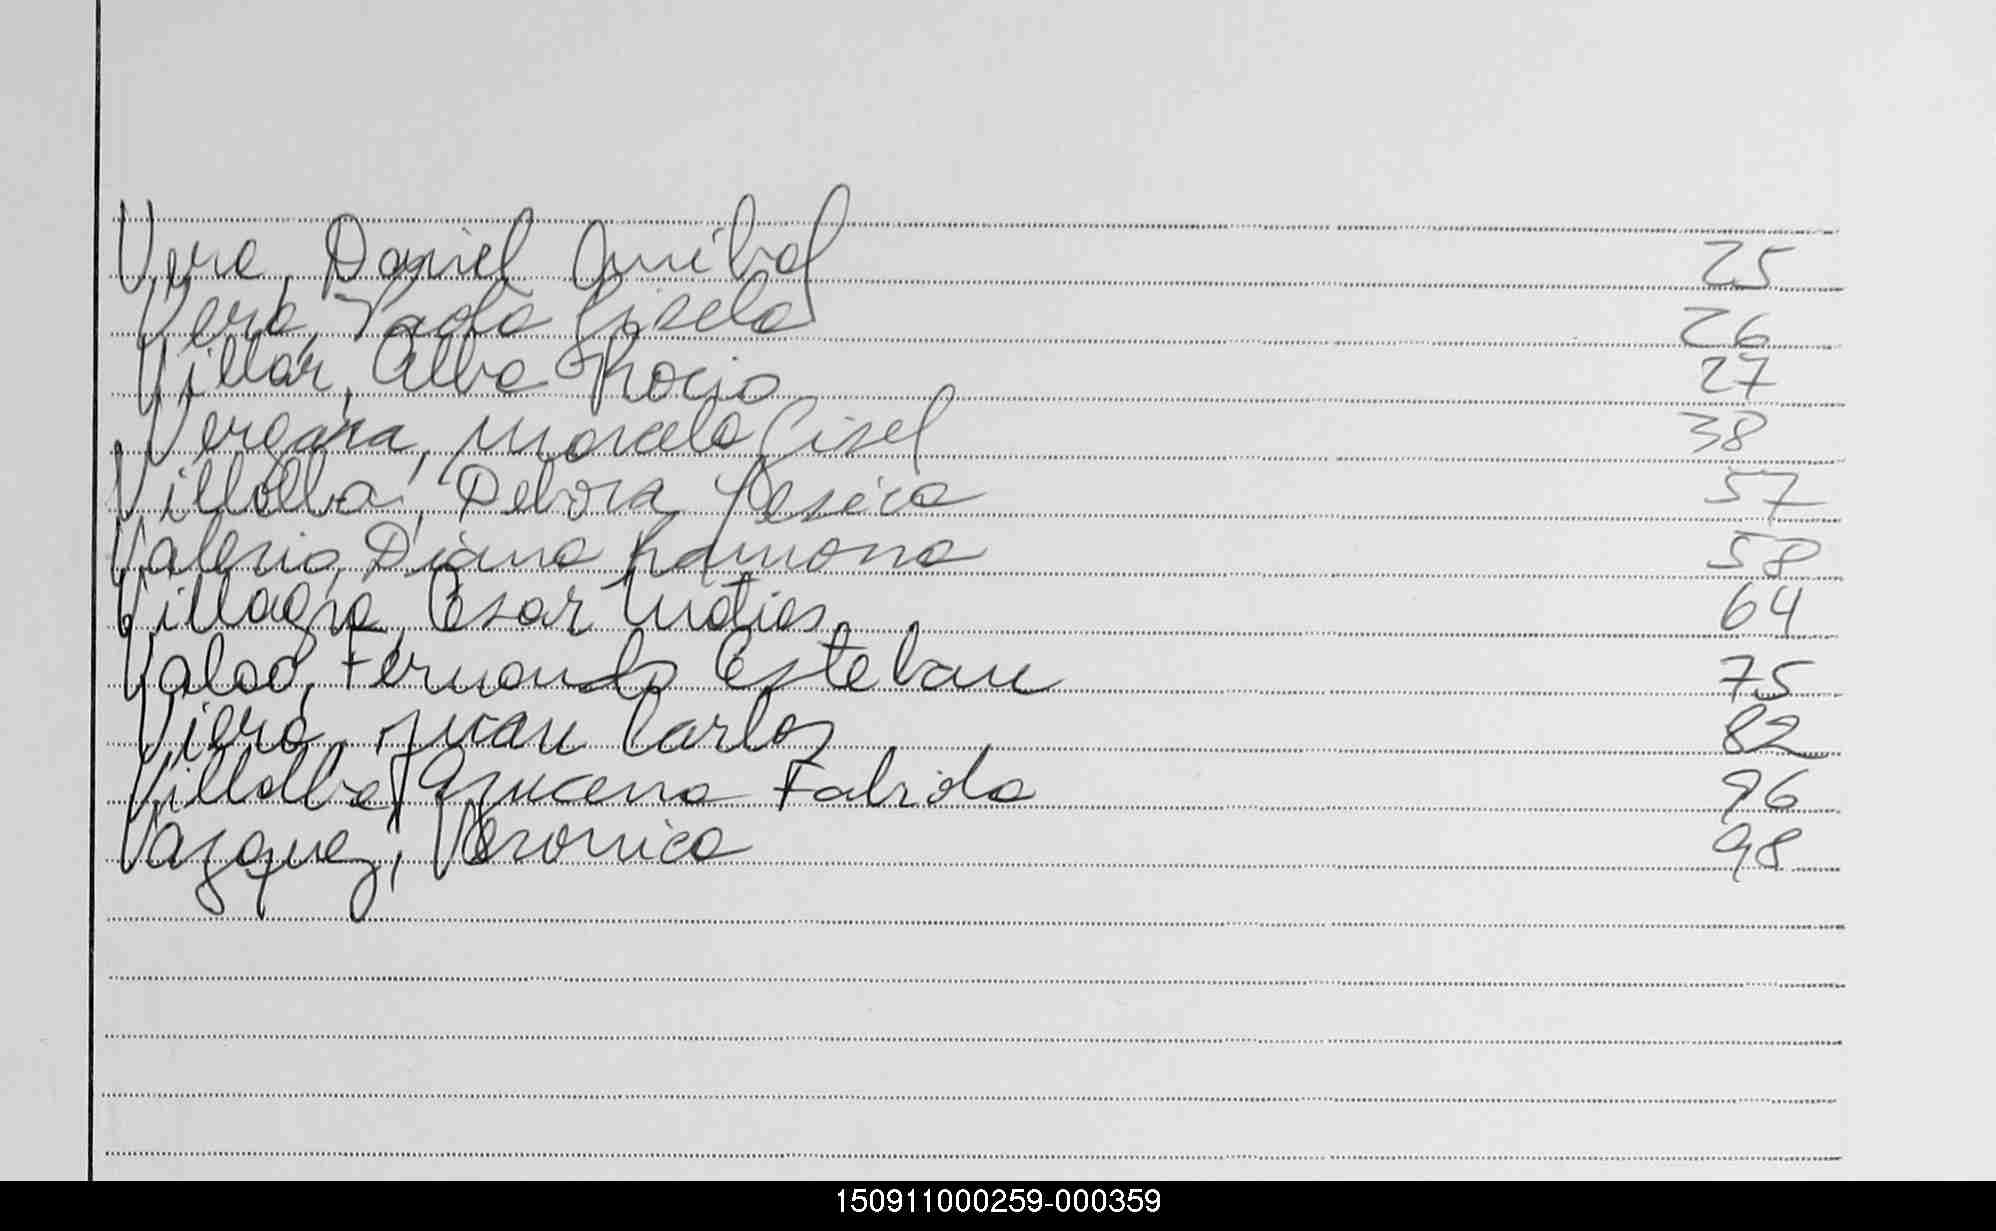 Vera, Daniel Anibal 25
Vera, Paola Gisela 26
Villar, Alba Rocio 27
Vergara, Marcela Gisel 38
Villalba, Debora Yesica 57
Valerio, Diana Ramona 58
Villagra, Cesar Matias 64
Fernando Esteban 75
Viera, Juan Carlos 82
Villalba, Azucena Fabiola 96
Vazquez, Veronica 98
150911000259-000359